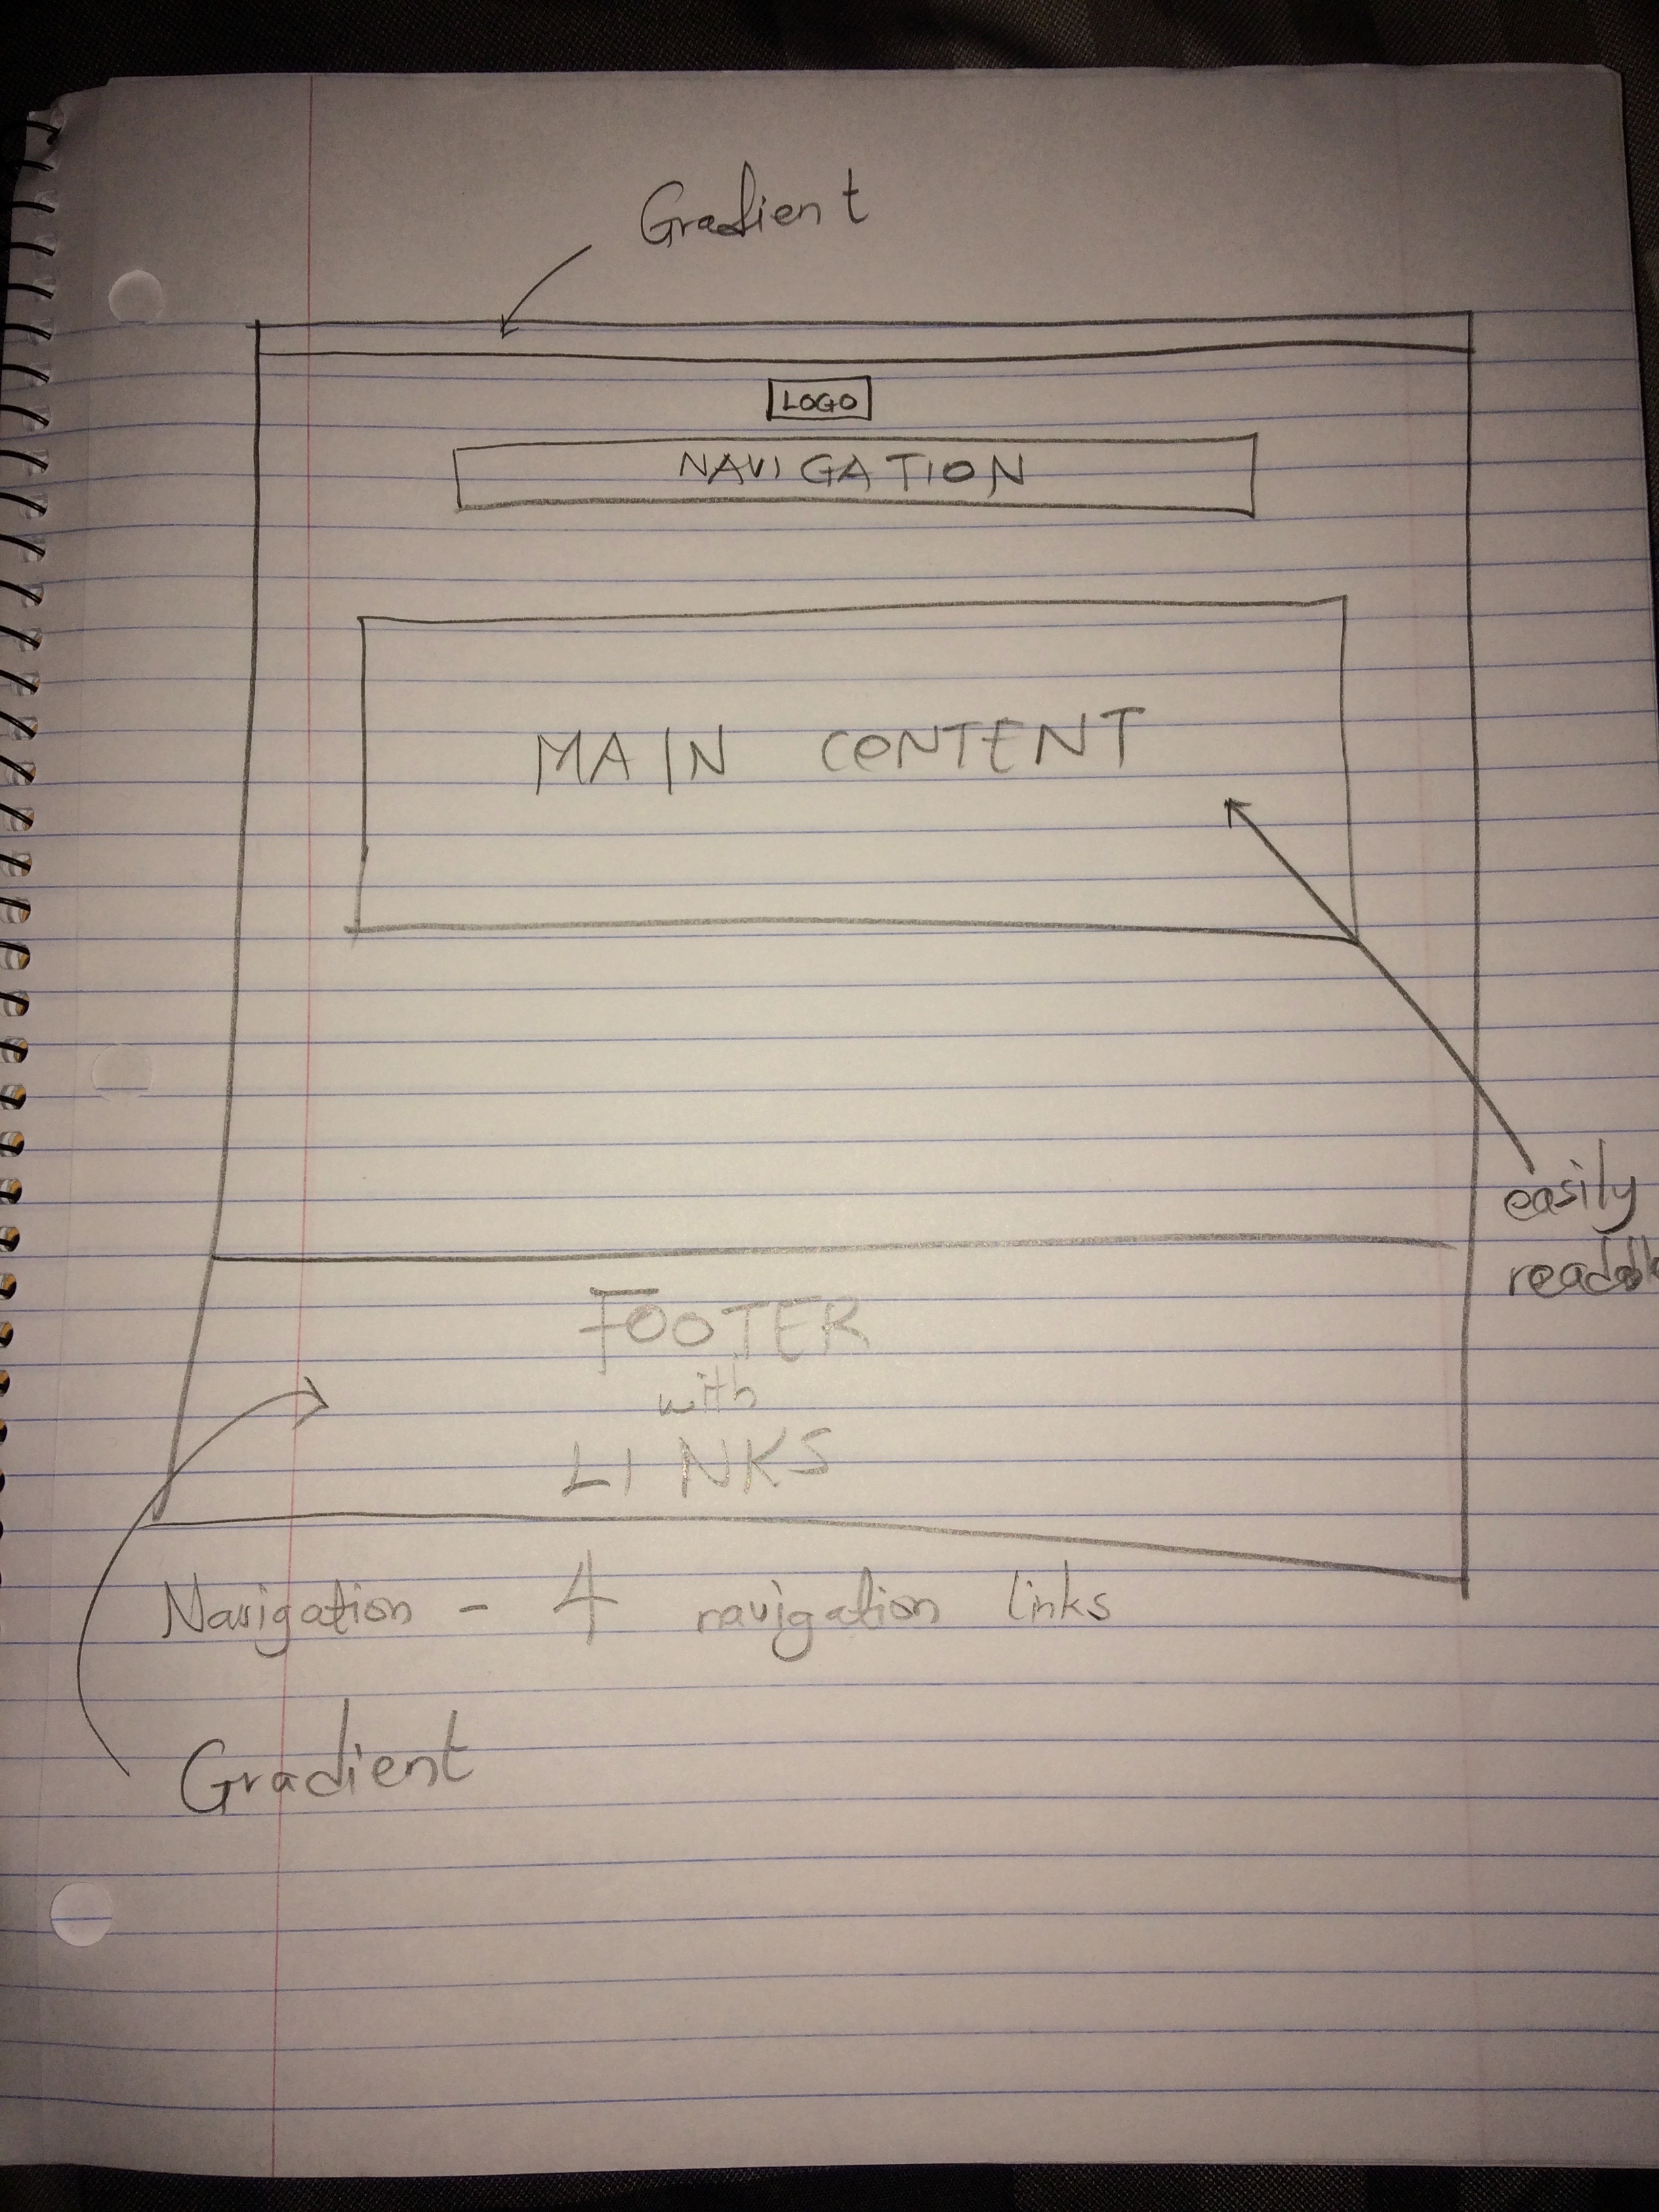 Gradient
LOGO
NAVIGATION
MAIN CONTENT
easily
FOOTER
with
LINKS
Navigation - 4 navigation links
Gradient